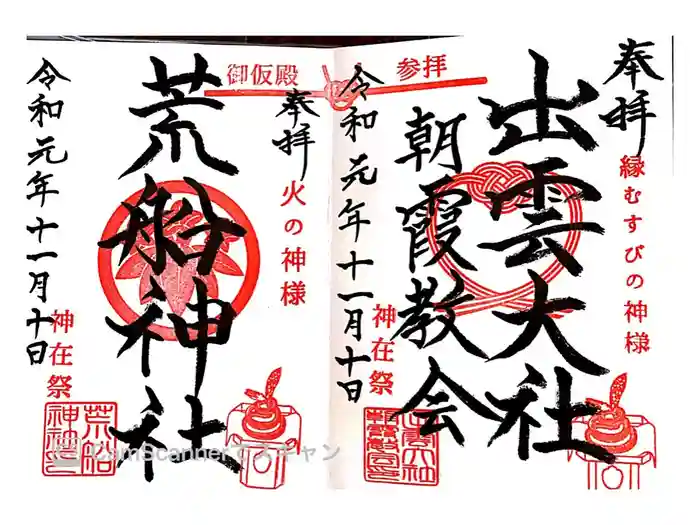 奉拝
縁むすびの神様
出雲大社
朝霞教会
参拝
令和元年十一月十日
神在祭
御仮殿
奉拝
火の神様
荒船神社
令和元年十一月十日
神在祭
荒船
神社
CamScannerでスキャン